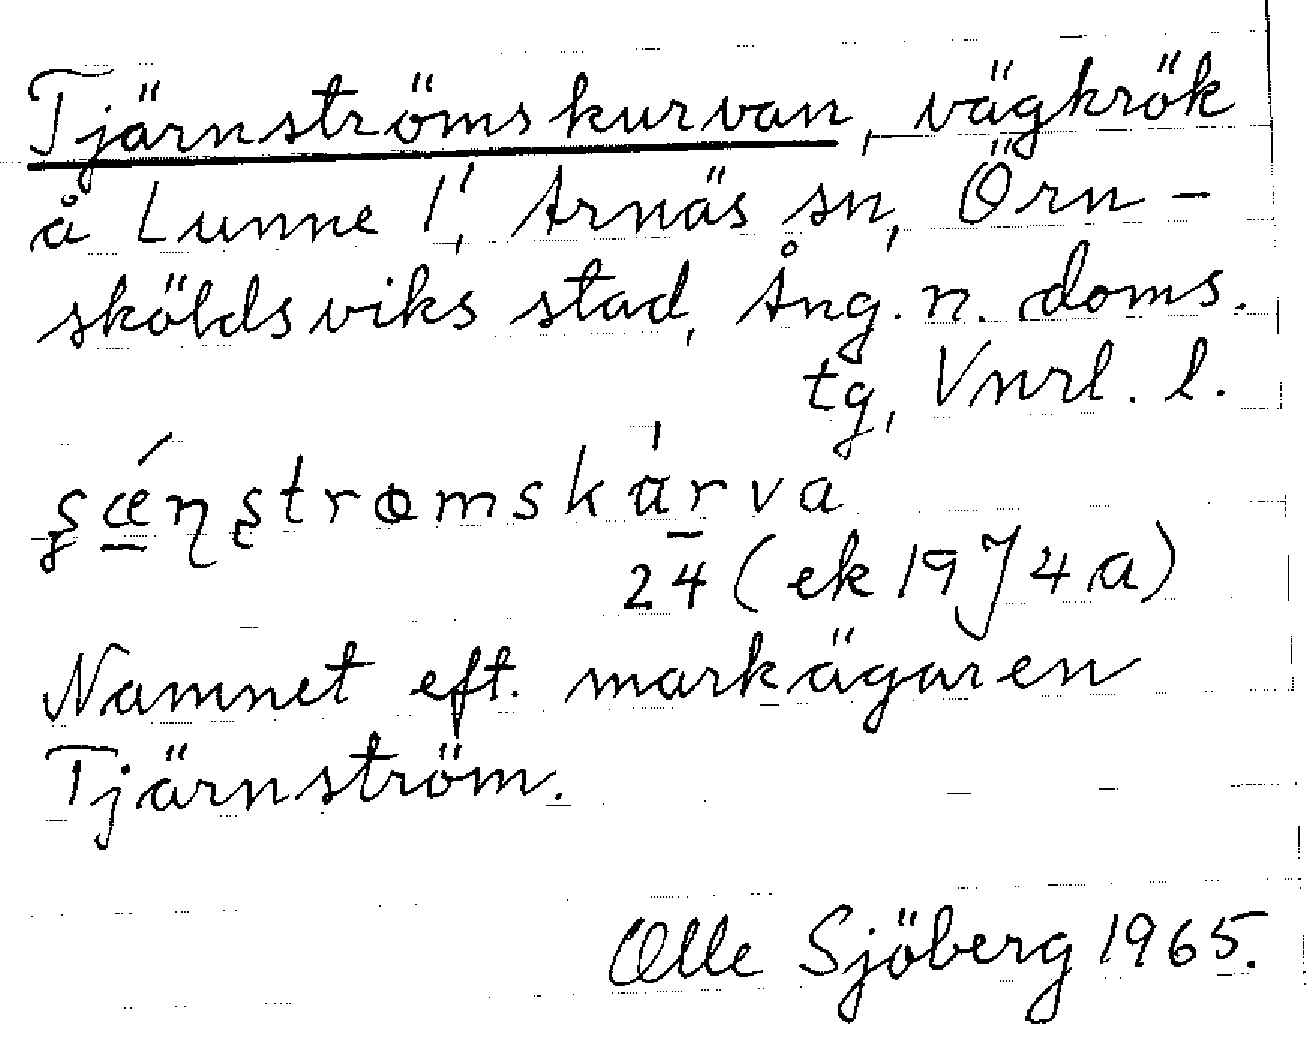 Tjärnströmskurvan, vägkrök
å Lunne 1', Arnäs sn, Örn-
sköldsviks stad, Ång. n. doms.
tg, Vnrl. l.
24 (ek 19 J 4 a)
Namnet eft. markägaren
Tjärnström.
Olle Sjöberg 1965.